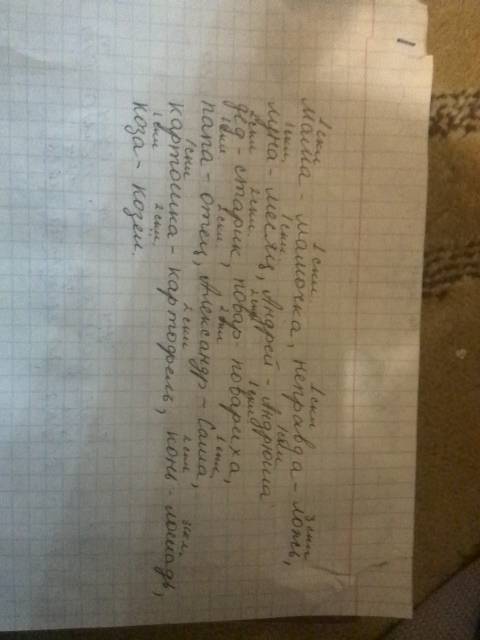 1 скл 1 скл 1 скл 3 скл
мама - мамочка, неправда - ложь,
1 скл 1 скл
луна - месяц, Андрей - Андрюша
2 скл 2 скл 2 скл 1 скл
дед - старик, повар - повариха,
1 скл 2 скл 2 скл 1 скл
папа - отец, Александр - Саша,
1 скл 2 скл 2 скл 3 скл
картошка - картофель, конь - лошадь,
1 скл 2 скл
коза - козел.